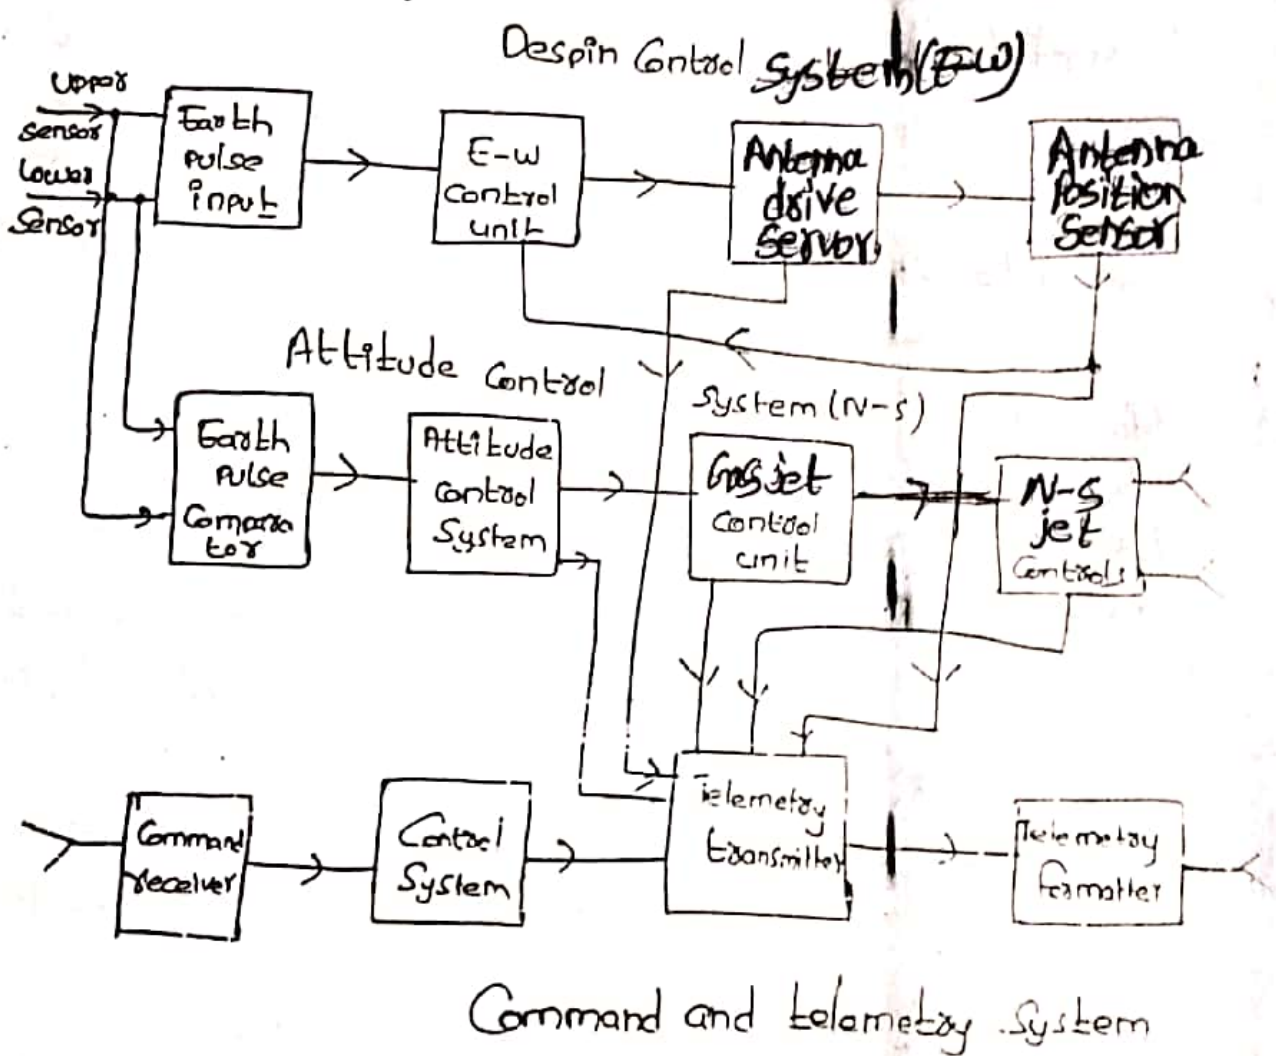 Despin Control System (E-W)
Upper
Sensor
Lower
Sensor
Earth
pulse
input
E-W
Control
unit
Antenna
drive
Servor
Antenna
Position
Sensor
Attitude Control System (N-S)
Earth
pulse
Compara
tor
Attitude
Control
System
Gas jet
Control
unit
N-S
jet
Controls
Command
receiver
Control
System
Telemetry
transmitter
Telemetry
formatter
Command and telemetry System